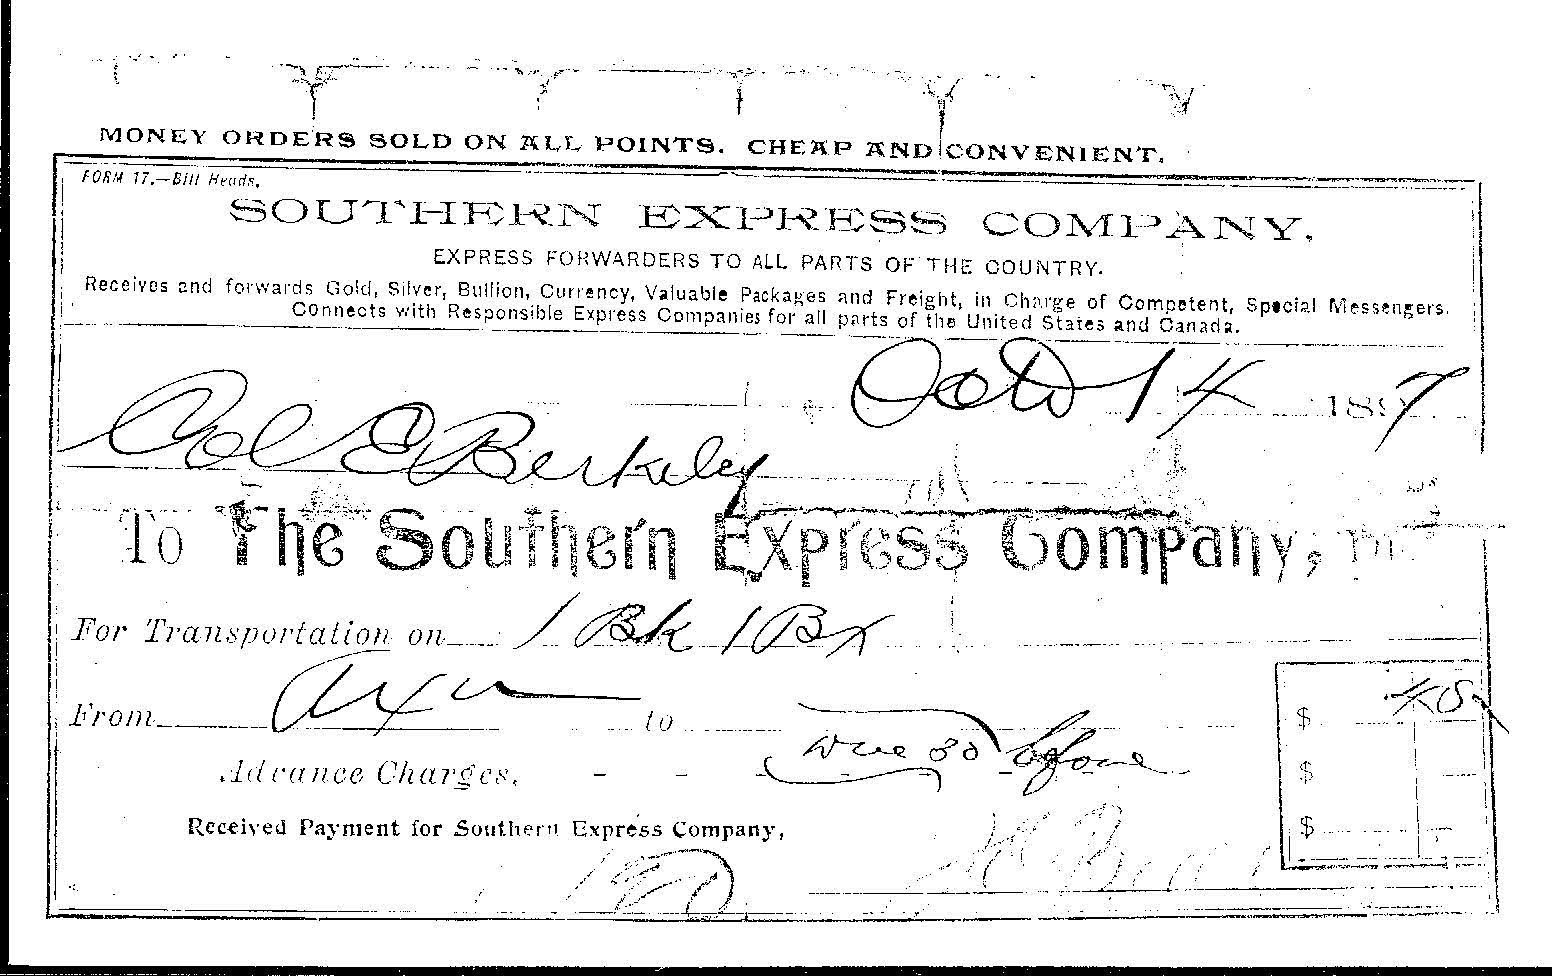 MONEY ORDERS SOLD ON ALL POINTS. CHEAP AND CONVENIENT.
FORM 17.—Bill Heads.
SOUTHERN EXPRESS COMPANY,
EXPRESS FORWARDERS TO ALL PARTS OF THE COUNTRY.
Receives and forwards Gold, Silver, Bullion, Currency, Valuable Packages and Freight, in Charge of Competent, Special Messengers.
Connects with Responsible Express Companies for all parts of the United States and Canada.
Oct 14 1897
Col E Berkeley
To The Southern Express Company, Dr.
For Transportation on 1 Bk 1 Bx
From Alxa to
$ 40
Advance Charges, - - - - - - $
Received Payment for Southern Express Company, $